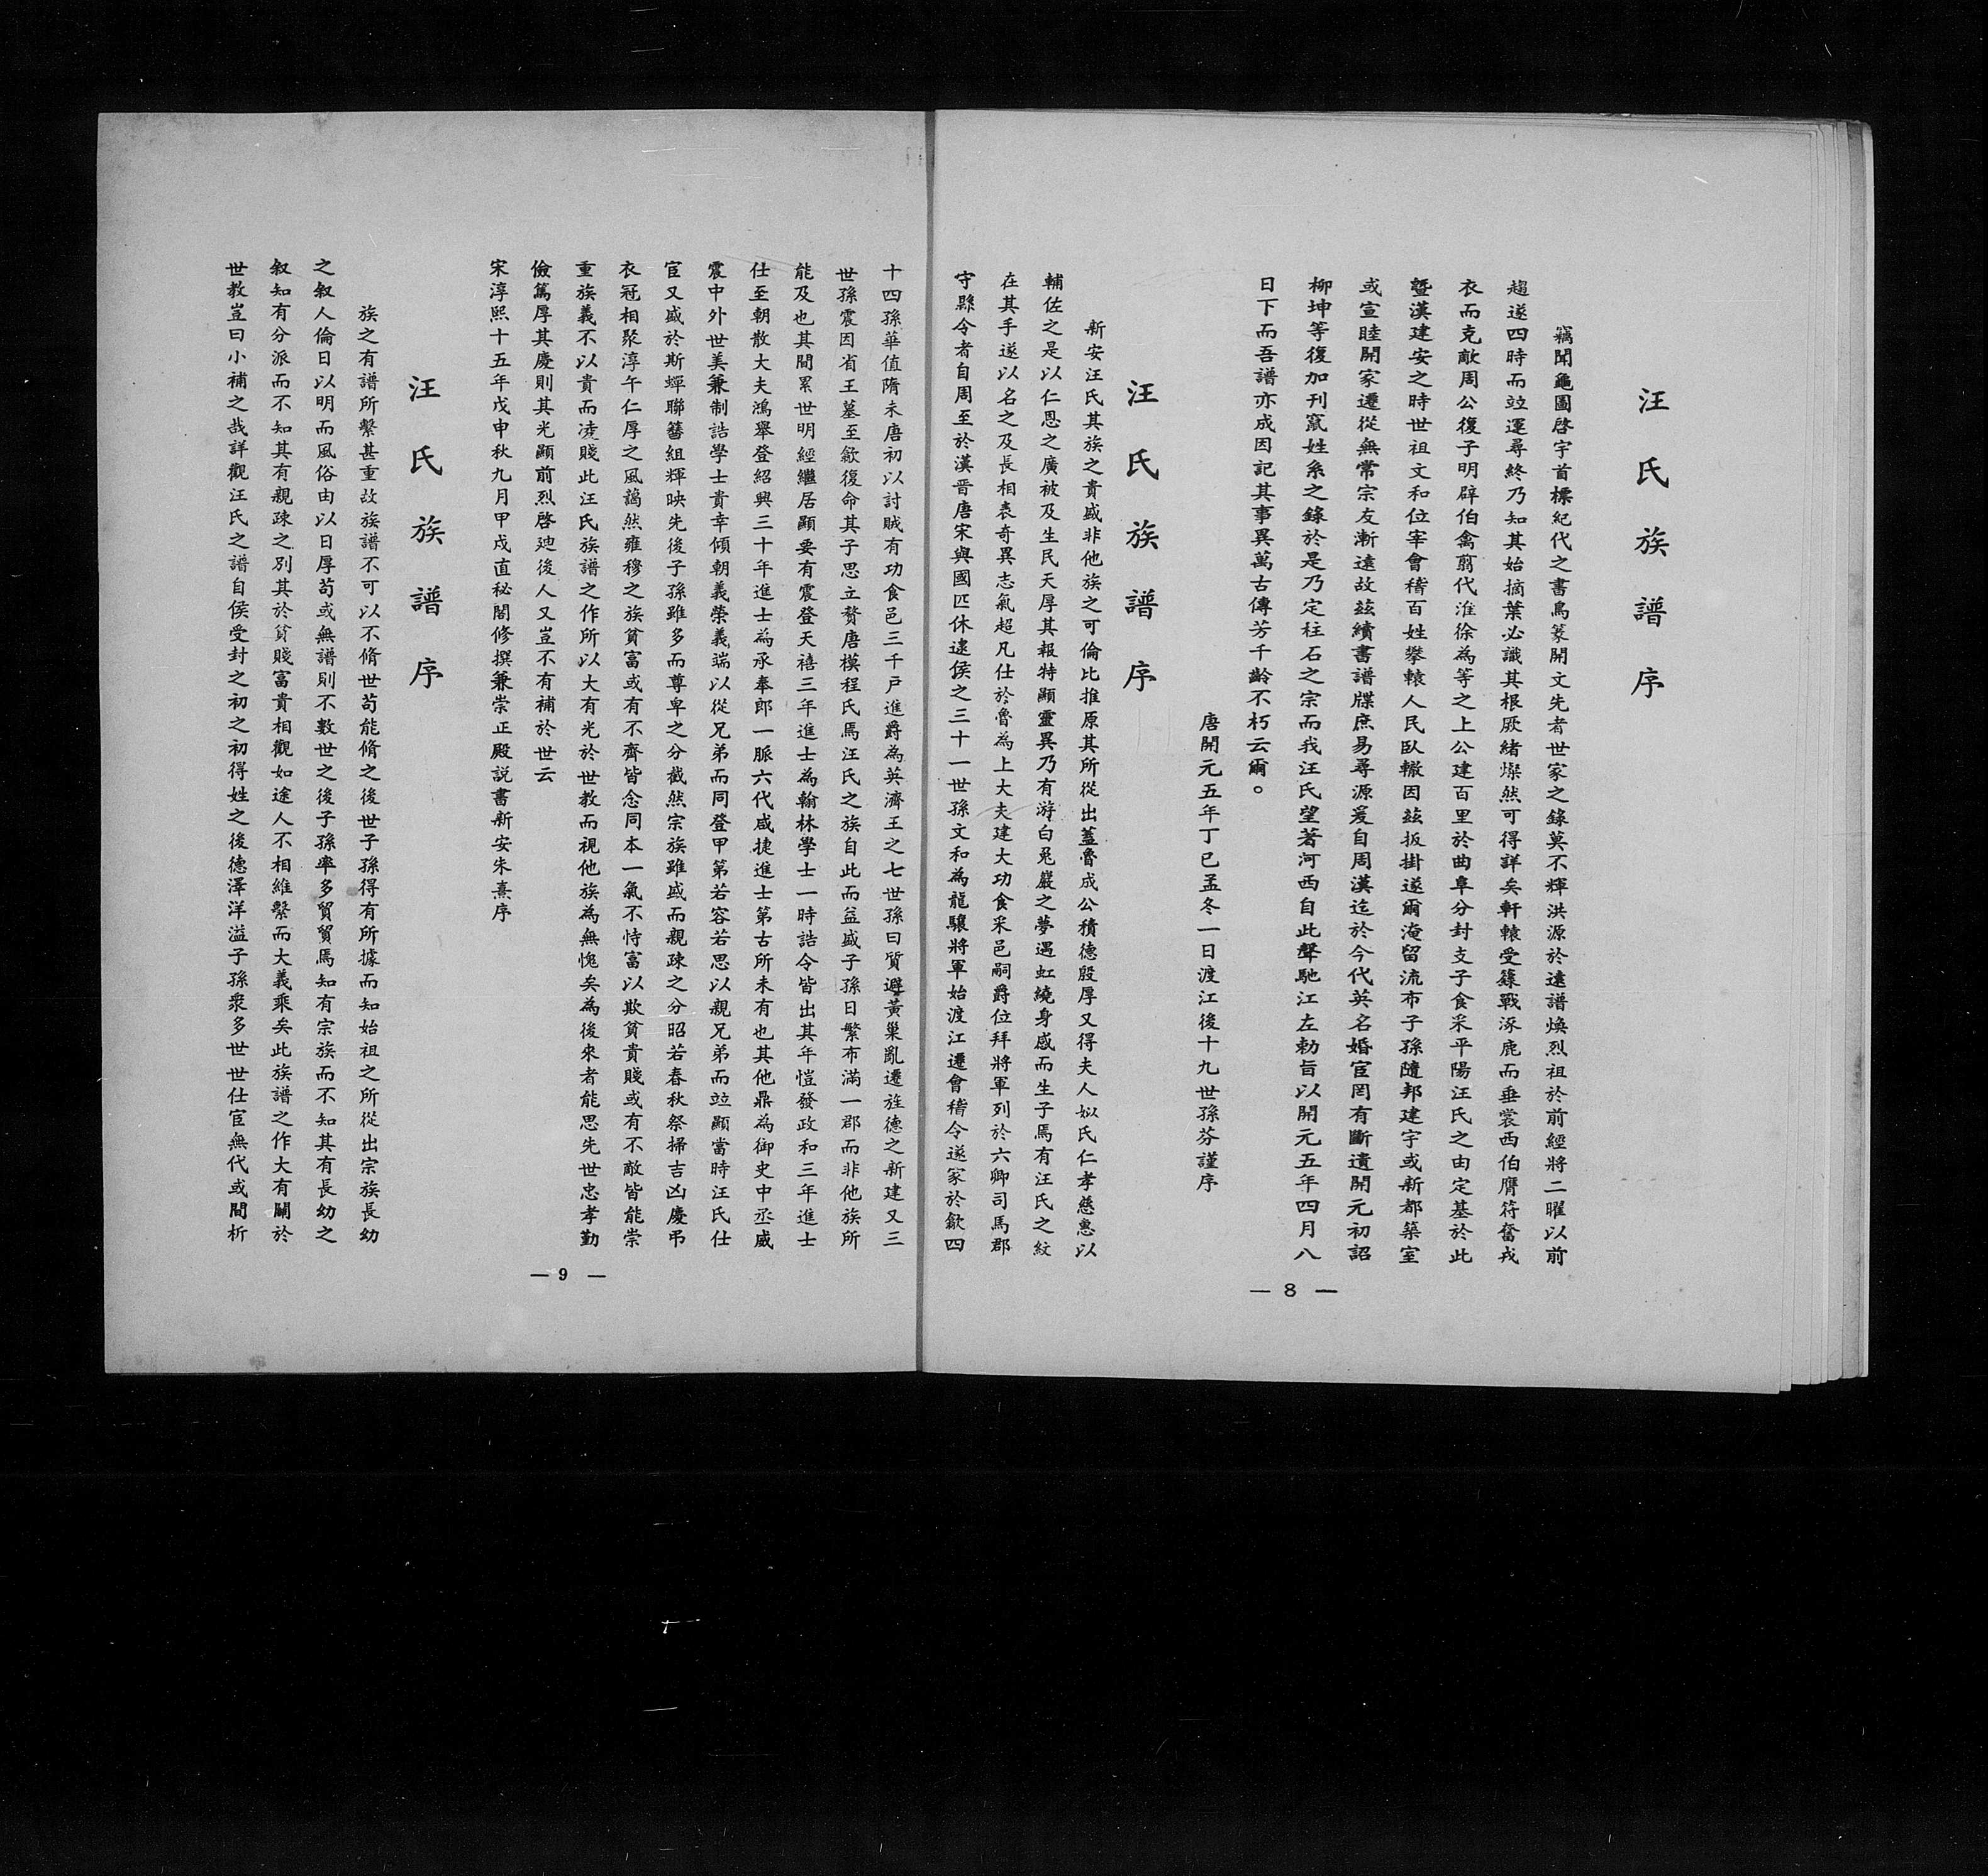 汪氏族譜序
竊聞龜圖啓宇首標紀代之書鳥篆開文先者世家之錄莫不輝洪源於遠譜煥烈祖於前經將二曜以前
趨遂四時而竝運尋終乃知其始摘葉必識其根厥緒燦然可得詳矣軒轅受籙戰涿鹿而垂裳西伯膺符奮戎
衣而克敵周公復子明辟伯禽翦代淮徐為等之上公建百里於曲阜分封支子食采平陽汪氏之由定基於此
曁漢建安之時世祖文和位宰會稽百姓攀轅人民臥轍因玆扳掛遂爾淹留流布子孫隨邦建宇或新都築室
或宣睦開家遷從無常宗友漸遠故玆續書譜牒庶易尋源爰自周漢迄於今代英名婚宦罔有斷遺開元初詔
柳坤等復加刊竄姓系之錄於是乃定柱石之宗而我汪氏望著河西自此聲馳江左勅旨以開元五年四月八
日下而吾譜亦成因記其事異萬古傳芳千齡不朽云爾。
唐開元五年丁巳孟冬一日渡江後十九世孫芬謹序
汪氏族譜序
新安汪氏其族之貴盛非他族之可倫比推原其所從出蓋魯成公積德殷厚又得夫人姒氏仁孝慈惠以
輔佐之是以仁恩之廣被及生民天厚其報特顯靈異乃有游白兎巖之夢遇虹繞身感而生子焉有汪氏之紋
在其手遂以名之及長相表奇異志氣超凡仕於魯為上大夫建大功食采邑嗣爵位拜將軍列於六卿司馬郡
守縣令者自周至於漢晋唐宋與國匹休逮侯之三十一世孫文和為龍驤將軍始渡江遷會稽令遂家於歙四
— 8 —
十四孫華值隋未唐初以討賊有功食邑三千戶進爵為英濟王之七世孫曰質避黃巢亂遷旌德之新建又三
世孫震因省王墓至歙復命其子思立贅唐模程氏焉汪氏之族自此而益盛子孫日繁布滿一郡而非他族所
能及也其間累世明經繼居顯要有震登天禧三年進士為翰林學士一時誥令皆出其年愷發政和三年進士
仕至朝散大夫鴻舉登紹興三十年進士為承奉郎一脈六代咸捷進士第古所未有也其他鼎為御史中丞咸
震中外世美兼制誥學士貴幸傾朝義榮義端以從兄弟而同登甲第若容若思以親兄弟而竝顯當時汪氏仕
宦又盛於斯蟬聯簪組輝映先後子孫雖多而尊卑之分截然宗族雖盛而親疎之分昭若春秋祭掃吉凶慶弔
衣冠相聚淳午仁厚之風藹然雍穆之族貧富或有不齊皆念同本一氣不恃富以欺貧貴賤或有不敵皆能崇
重族義不以貴而凌賤此汪氏族譜之作所以大有光於世教而視他族為無愧矣為後來者能思先世忠孝勤
儉篤厚其慶則其光顯前烈啓廸後人又豈不有補於世云
宋淳熙十五年戊申秋九月甲戍直秘閣修撰兼崇正殿説書新安朱熹序
汪氏族譜序
族之有譜所繫甚重故族譜不可以不脩世苟能脩之後世子孫得有所據而知始祖之所從出宗族長幼
之叙人倫日以明而風俗由以日厚苟或無譜則不數世之後子孫率多貿貿焉知有宗族而不知其有長幼之
叙知有分派而不知其有親疎之別其於貧賤富貴相觀如途人不相維繫而大義乘矣此族譜之作大有關於
世教豈曰小補之哉詳觀汪氏之譜自侯受封之初之初得姓之後德澤洋溢子孫衆多世世仕宦無代或間析
— 9 —